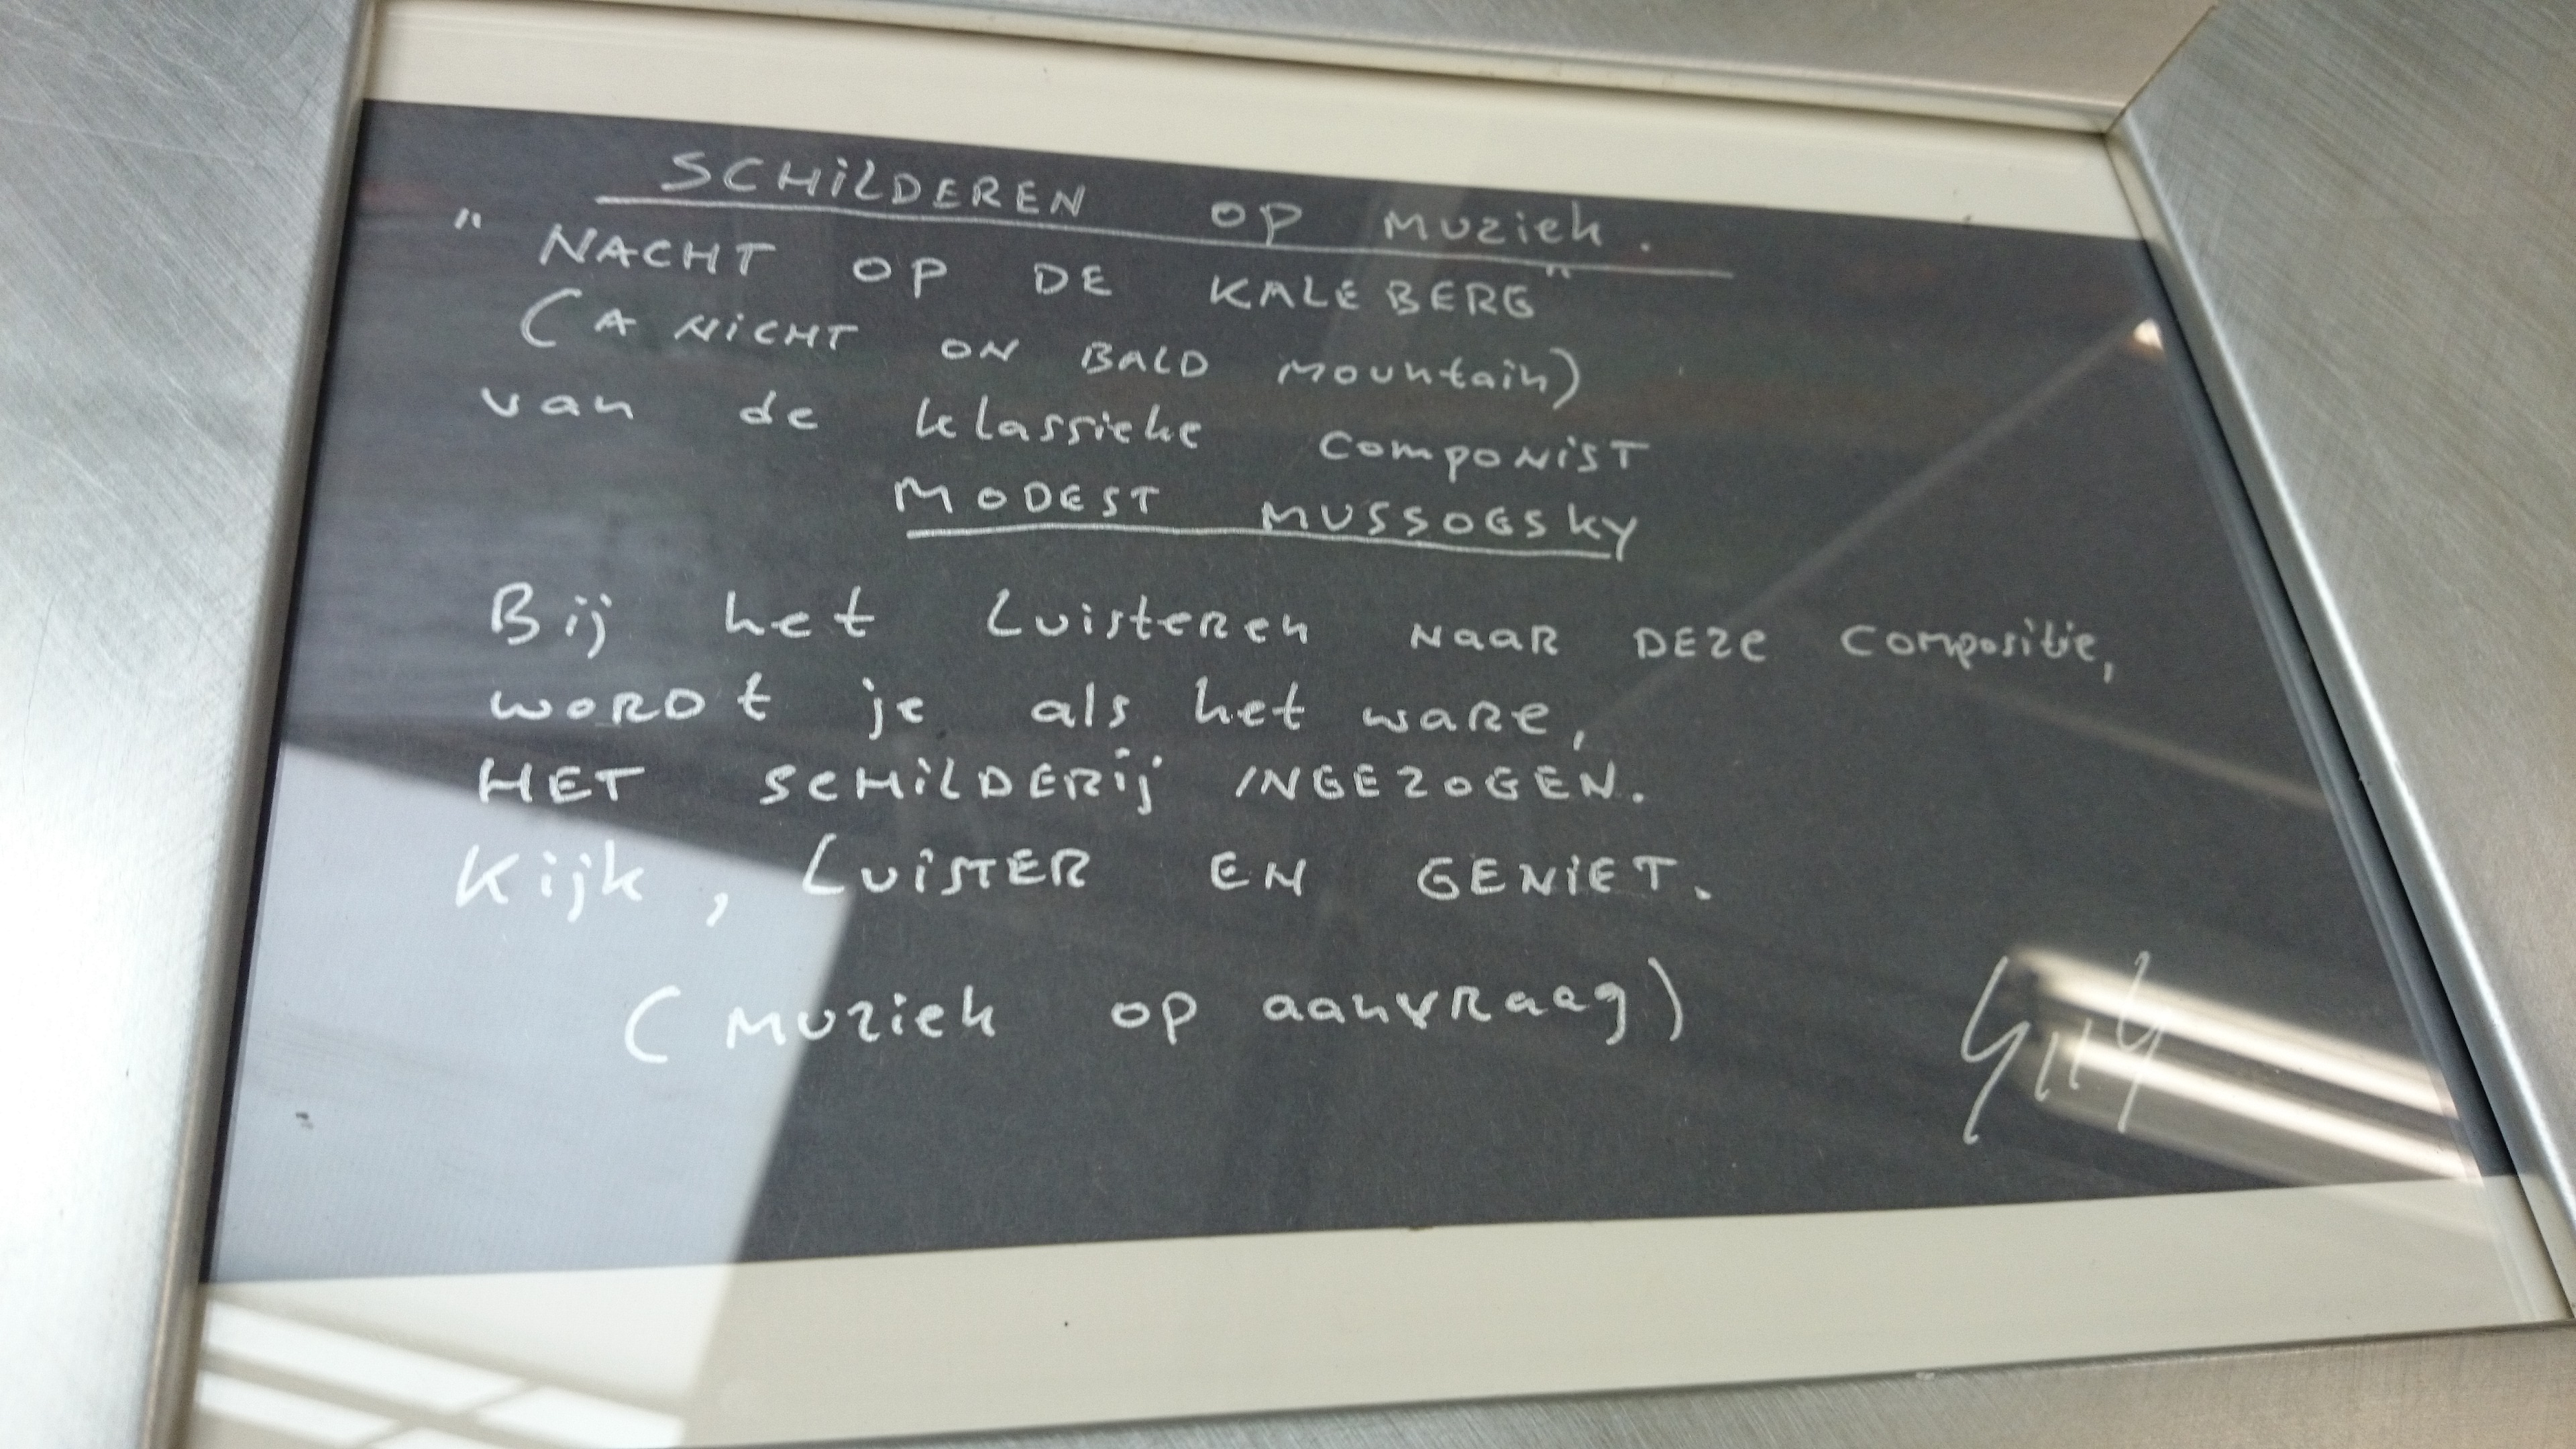 SCHILDEREN OP MUZIEK.
"NACHT OP DE KALE BERG"
(A NICHT ON BALD MOUNTAIN)
van de klassieke COMPONIST
MODEST MUSSOGSKY
Bij het Luisteren NAAR DEZE Compositie,
WORDt je als het ware,
HET SCHILDERij INGEZOGEN.
Kijk, LUISTER EN GENIET.
(MUZIEK OP aanvraag)